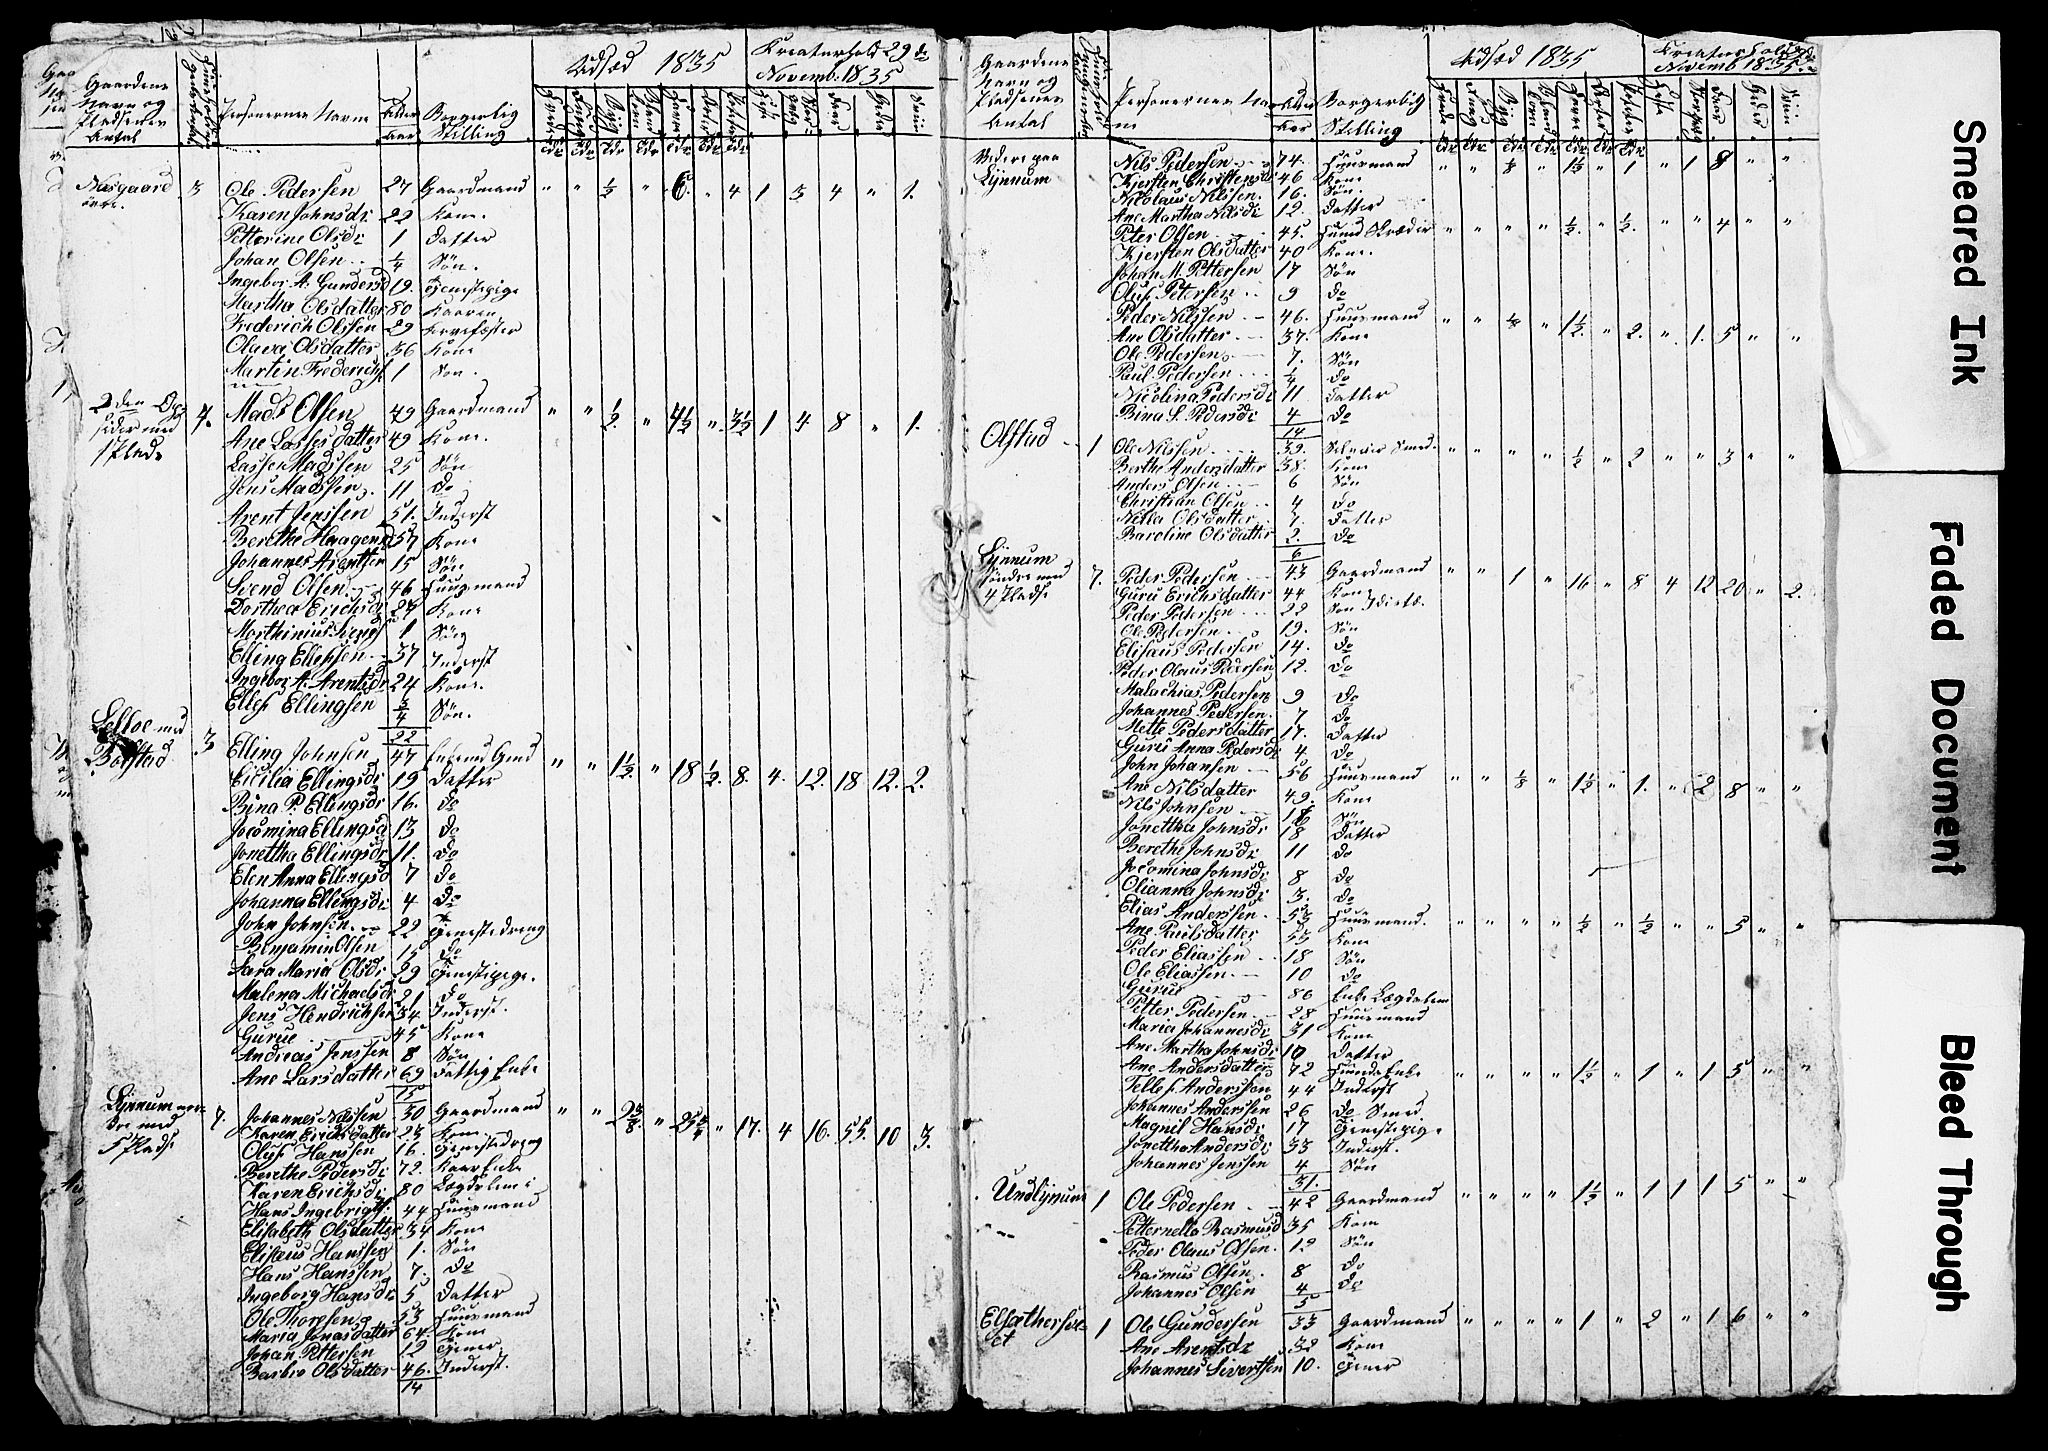 Gaardenes Navn og Pladsenes Antal
Personernes Navne
Alder Aar
Borgerlig Stilling
Udsæd 1835
Kreaturhold 29de Novemb. 1835
Næsgaard øvre. 3 Ole Pedersen 27 Gaardmand " " ½ " 6. " 4 1 3 4 " 1.
Karen Johnsdr 22 Kone.
Petterine Olsdr 1 Datter
Johan Olsen ¼ Søn.
Ingebor A. Gundersd 19. Tjenestepige
Martha Olsdatter 80 Kaaren
Frederich Olssen 29
Olava Olsdatter 36 Kone
Martin Frederichs 1 Søn.
med 1 Plads 4. Mads Olsen 49 Gaardmand " " ½ " 4½ " 3½ 1 4 8 " 1.
Ane Lassesdatter 49 Kone.
Lasse Madssen 25 Søn
Jens Madssen 11 Do
Arent Jenssen 51. Inderst
Berethe Haagensd 57 Kone
Johannes Arentsen 15 Søn
Svend Olsen 46 Huusmand
Dorthea Erichsdr 27 Kone
Marthinus Svends 1 Søn
Elling Ellefsen 37 Inderst
Ingebor A. Arentsdr 24 Kone.
Ellef Ellingsen ¾ Søn.
22
Bolstad 3 Elling Johnsen 47 " " 1½ " 18 ½ 8 4. 12. 18 12. 2.
Cicilia Ellingsdr 19 Datter
Bina P. Ellingsdr 16. Do
Jocomina Ellingsd 13 Do
Jonettha Ellingsdr 11. Do
Elen Anna Ellingsd 7 Do
Johanna Ellingsdr 4 Do
John Johnsen 22 Tjenestedreng
Benjamin Olsen 15 Do
Sara Maria Olsdr 29 Tjenestepige.
Malena Michaelsdr 21 Do
Jens Hendrichsen 34 Inderst.
Gurue 45 Kone
Andreas Jenssen 8 Søn
Ane Larsdatter 69 Fattig Enke
15
Lynnum nordre med 5 Pladse 7. Johannes Nilsen 30 Gaardmand " " 2⅜ " 25¾ " 17. 4 16. 55. 10 3.
Karen Erichsdatter 23 Kone
Oluf Hanssen 16. Tjenestedreng
Berethe Pedersdr 72. Kaar Enke
Karen Erichsdr 80 Lægdslem
Hans Ingebrigts. 44 Huusmand
Elisabeth Olsdatter 34 Kone
Elisæus Hanssen 1. Søn
Hans Hanssen 7. Do
Ingeborg Hansdr 5 Datter
Ole Thoresen 53 Huusmand
Maria Jonasdatter 64. Kone
Johan Pettersen 12 Tjener
Barbro Olsdatter 46. Inderst.
14
Gaardenes Navn og Pladsenes Antal
Personernes Navne
Alder Aar
Borgerlig Stilling
Udsæd 1835
Kreaturhold Novemb 1835
Videre paa Lynnum Nils Pedersen 74. Huusmand " " ⅛ " 1½ " 1 " 1 8 " "
Kjersten Christensdr 46 Kone
Nicolaus Nilssen. 16. Søn.
Ane Martha Nilsdr 12. Datter
Peter Olsen 45. " " " " ½. " ½. " " 4 " "
Kjersten Olsdatter 40 Kone.
Johan M. Pettersen 17 Søn
Oluf Petersen 9 Do
Peder Nilssen 46. Huusmand " " ⅛ " 1½ " 2. " 1. 5 " "
Ane Olsdatter 37. Kone
Ole Pedersen 7. Søn
Paul Pedersen ¼ Do
Nicolina Pedersdr 11 Datter
Bina S. Pedersdr 4 Do
14
Olstad 1 Ole Nilssen 39. Smed. " " " " ½ " 2 " " 3 " "
Berthe Andersdatter 38. Kone
Anders Olsen 6 Søn
Christian Olsen 4 Do
Nella Olsdatter 7. Datter
Baroline Olsdatter 2. Do
6
Lynnum søndre med 4 Pladse 7. Peder Pedersen 43 Gaardmand " " 1 " 16 " 8 4 12 20 " 2.
Guru Erichsdatter 44 Kone
Peder Pedersen 22 Søn
Ole Pedersen 19. Søn
Elisæus Pedersen 14. Do
Peder Olaus Pedersen 12. Do
Malachias Pedersen 9 Do
Johannes Pedersen. 7 Do
Mette Pedersdatter 17. Datter
Guru Anna Pedersdr 4. Do
John Johansen 56 Huusmand " " ⅛ " 1½ " 1. " 2 8 " "
Ane Nilsdatter 49. Kone
Nils Johnsen 16 Søn
Jonettha Johnsdr 18 Datter
Berethe Johnsdr 11 Do
Jocomina Johnsdr 8 Do
Olianna Johnsdr 3. Do
Elias Anderssen 53 Huusmand. " " " " ½ " ½ " " 5 " "
Ane Paulsdatter 55 Kone
Peder Eliassen 18 Søn
Ole Eliassen 10 Do
Gurue 86 Enke Lægdslem
Petter Pedersen 28 Huusmand
Maria Johannesdr 31 Kone
Ane Martha Johnsdr 10 Datter
Ane Andersdatter 72 " " " " 1½ " 1 " 1 5 " "
Tellef Anderssen 44 Inderst
Johannes Anderssen 26 Do Smed
Magnil Hansdr 17 Tjenestepige
Jonettha Andersdr 33 Inderst.
Johannes Jenssen 4 Søn
31.
Undlynum 1 Ole Pedersen 42 Gaardmand " " " " 1½ " 1 1 1 5 " "
Petternella Rasmusd 35 Kone
Peder Olaus Olsen. 12 Søn
Rasmus Olsen. 8 Do
Johannes Olsen 4 Do
5
1 Ole Gundersen 33 Gaardmand " " " " 1 " 2 " 1 6 " "
Ane Arentsdr 32 Kone
Johannes Sivertsen 10. Tjener
Smeared Ink
Faded Document
Bleed Through